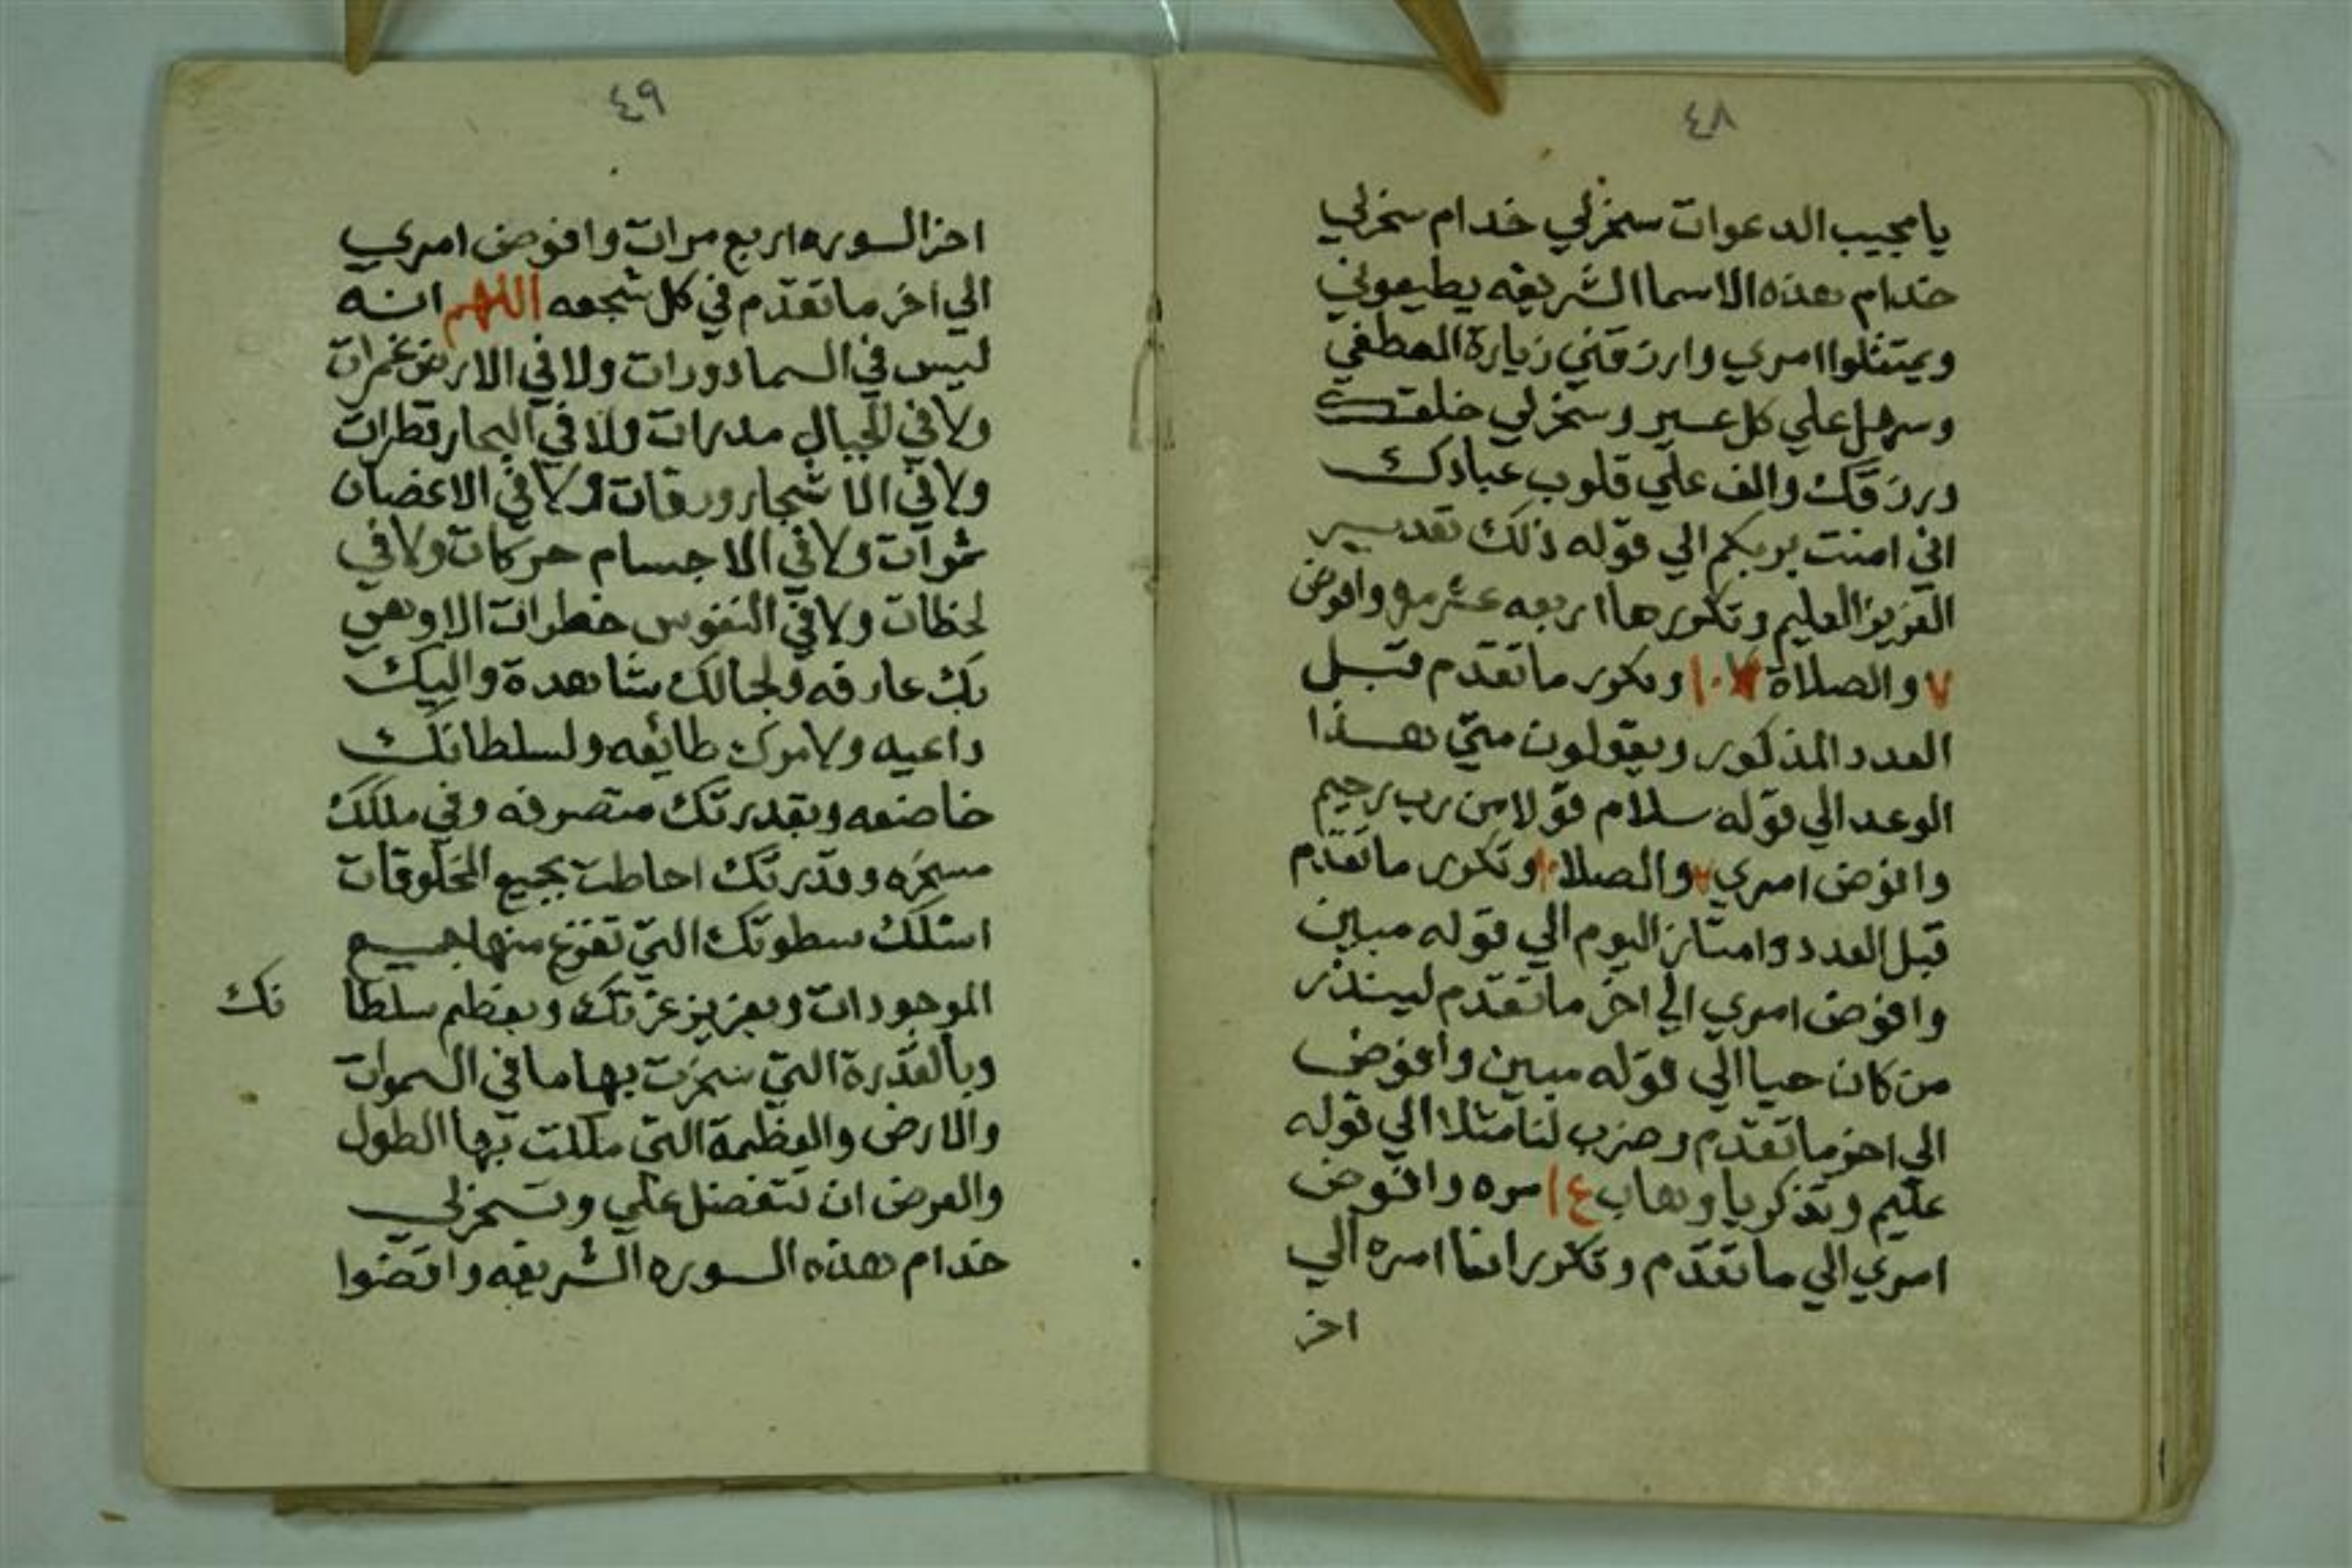 ٤٨
يا مجيب الدعوات سخرلي خدام سخرلي
خدام هذه الاسما الشريفه يطيعوني
ويمتثلوا امري وارزقني زيارة المصطفي
وسهل علي كل عسير وسخرلي خلقك
ورزقك والف علي قلوب عبادك
اني امنت بربكم الي قوله ذلك تقدير
العزيز العليم وتكررها اربعه عشر مره وافوض
٧ والصلاة ١٠ وتكرر ما تقدم قبل
العدد المذكور ويقولون متي هذا
الوعد الي قوله سلام قولا من رب رحيم
وافوض امري ٧ والصلا ١٠ وتكرر ما تقدم
قبل العدد وامتاز اليوم الي قوله مبين
وافوض امري الي اخر ما تقدم لينذر
من كان حيا الي قوله مبين وافوض
الي اخر ما تقدم وضرب لنا مثلا الي قوله
عليم وتذكر يا وهاب ١٤ مره وافوض
امري الي ما تقدم وتكرر انما امره الي
اخر
٤٩
اخر السوره اربع مرات وافوض امري
الي اخر ما تقدم في كل شجعه اللهم انه
ليس في السما دورات ولا في الارض غمرات
ولا في الجبال مدرات ولا في البحار قطرات
ولا في الاشجار ورقات ولا في الاغضان
ثمرات ولا في الاجسام حركات ولا في
لحظات ولا في النفوس خطرات الا وهي
بك عارفه ولجمالك شاهدة واليك
داعيه ولامرك طائعه ولسلطانك
خاضعه وبقدرتك متصرفه وفي ملكك
مسخره وقدرتك احاطت بجميع المخلوقات
اسئلك سطوتك التي تفزع منها جميع
الموجودات وبعزيز عزتك وبعظم سلطا
نك
وبالقدرة التي سخرت بها ما في السموات
والارض والعظمة التي ملكت بها الطول
والعرض ان تتفضل علي وتسخرلي
خدام هذه السوره الشريفه واقضوا